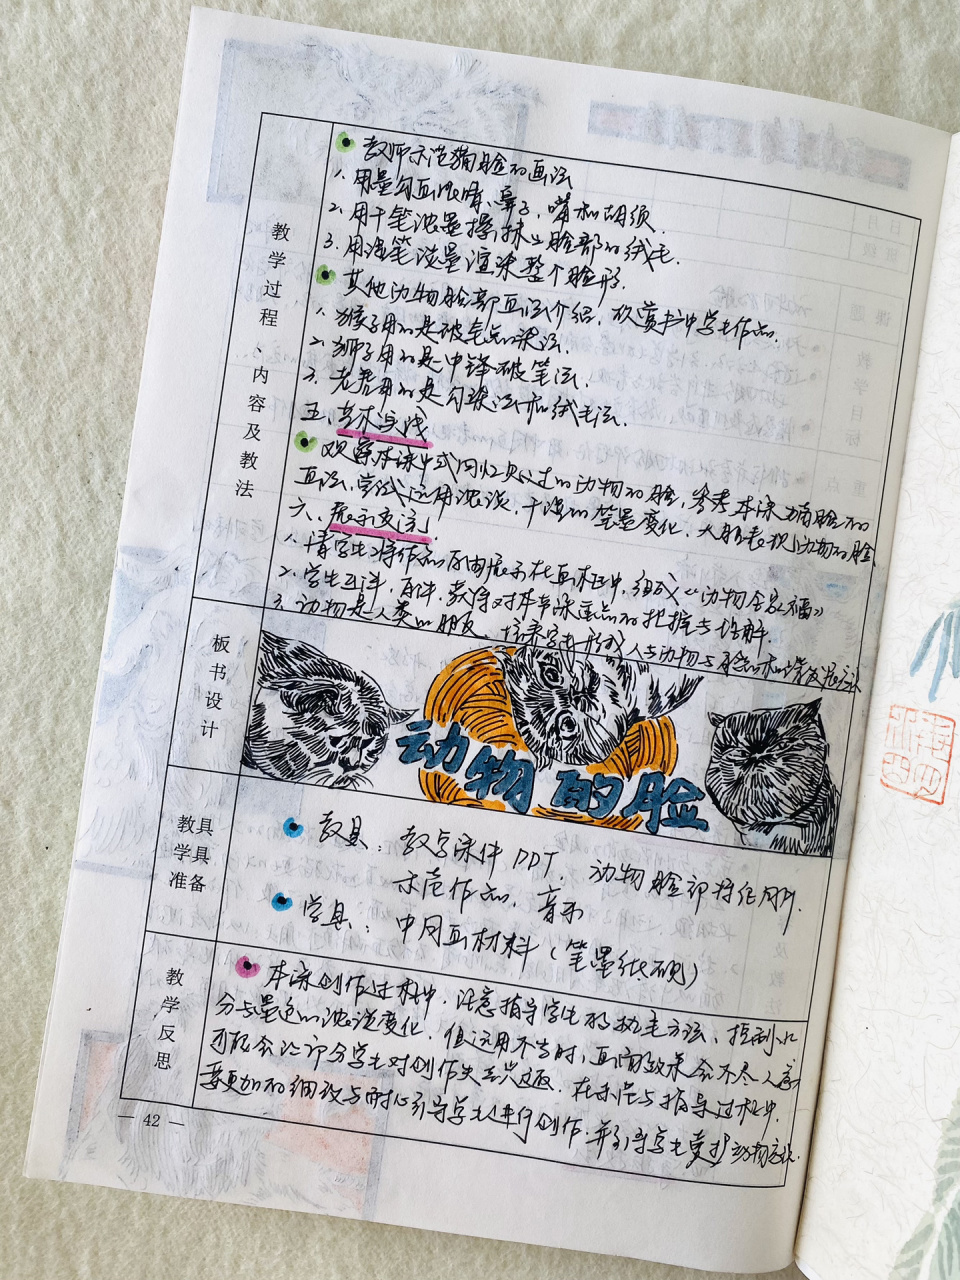 教学过程、内容及教法
教师示范猫脸的画法
1. 用墨勾画眼睛、鼻子、嘴和胡须.
2. 用干笔浓墨擦抹出脸部的绒毛.
3. 用湿笔淡墨渲染整个脸形.
其他动物脸部画法介绍，欣赏书中学生作品.
1. 猴子用的是破笔点染法.
2. 狮子用的是中锋破笔法.
3. 老虎用的是勾染法和绒毛法.
五、艺术实践
观察本课中或回忆见过的动物的脸，参考本课猫脸的
画法，尝试运用浓淡、干湿的笔墨变化，大胆表现动物的脸
六、展示交流
1. 请学生将作品自由展示在画框中，组成《动物全家福》
2. 学生互评，自评，获得对本节课重点的把握与理解.
3. 动物是人类的朋友、培养学生形成人与动物与自然和谐发展
板书设计
动物的脸
教具学具准备
教具：教学课件PPT，动物脸部特征图片.
示范作品，音乐
学具：中国画材料（笔墨纸砚）
教学反思
本课创作过程中，注意指导学生的执笔方法，控制水
分与墨色的浓淡变化，但运用不当时，画面效果会不尽人意
可能会让部分学生对创作失去兴趣. 在示范与指导过程中.
要更加的细致与耐心引导学生进行创作.并引导学生爱护动物
— 42 —